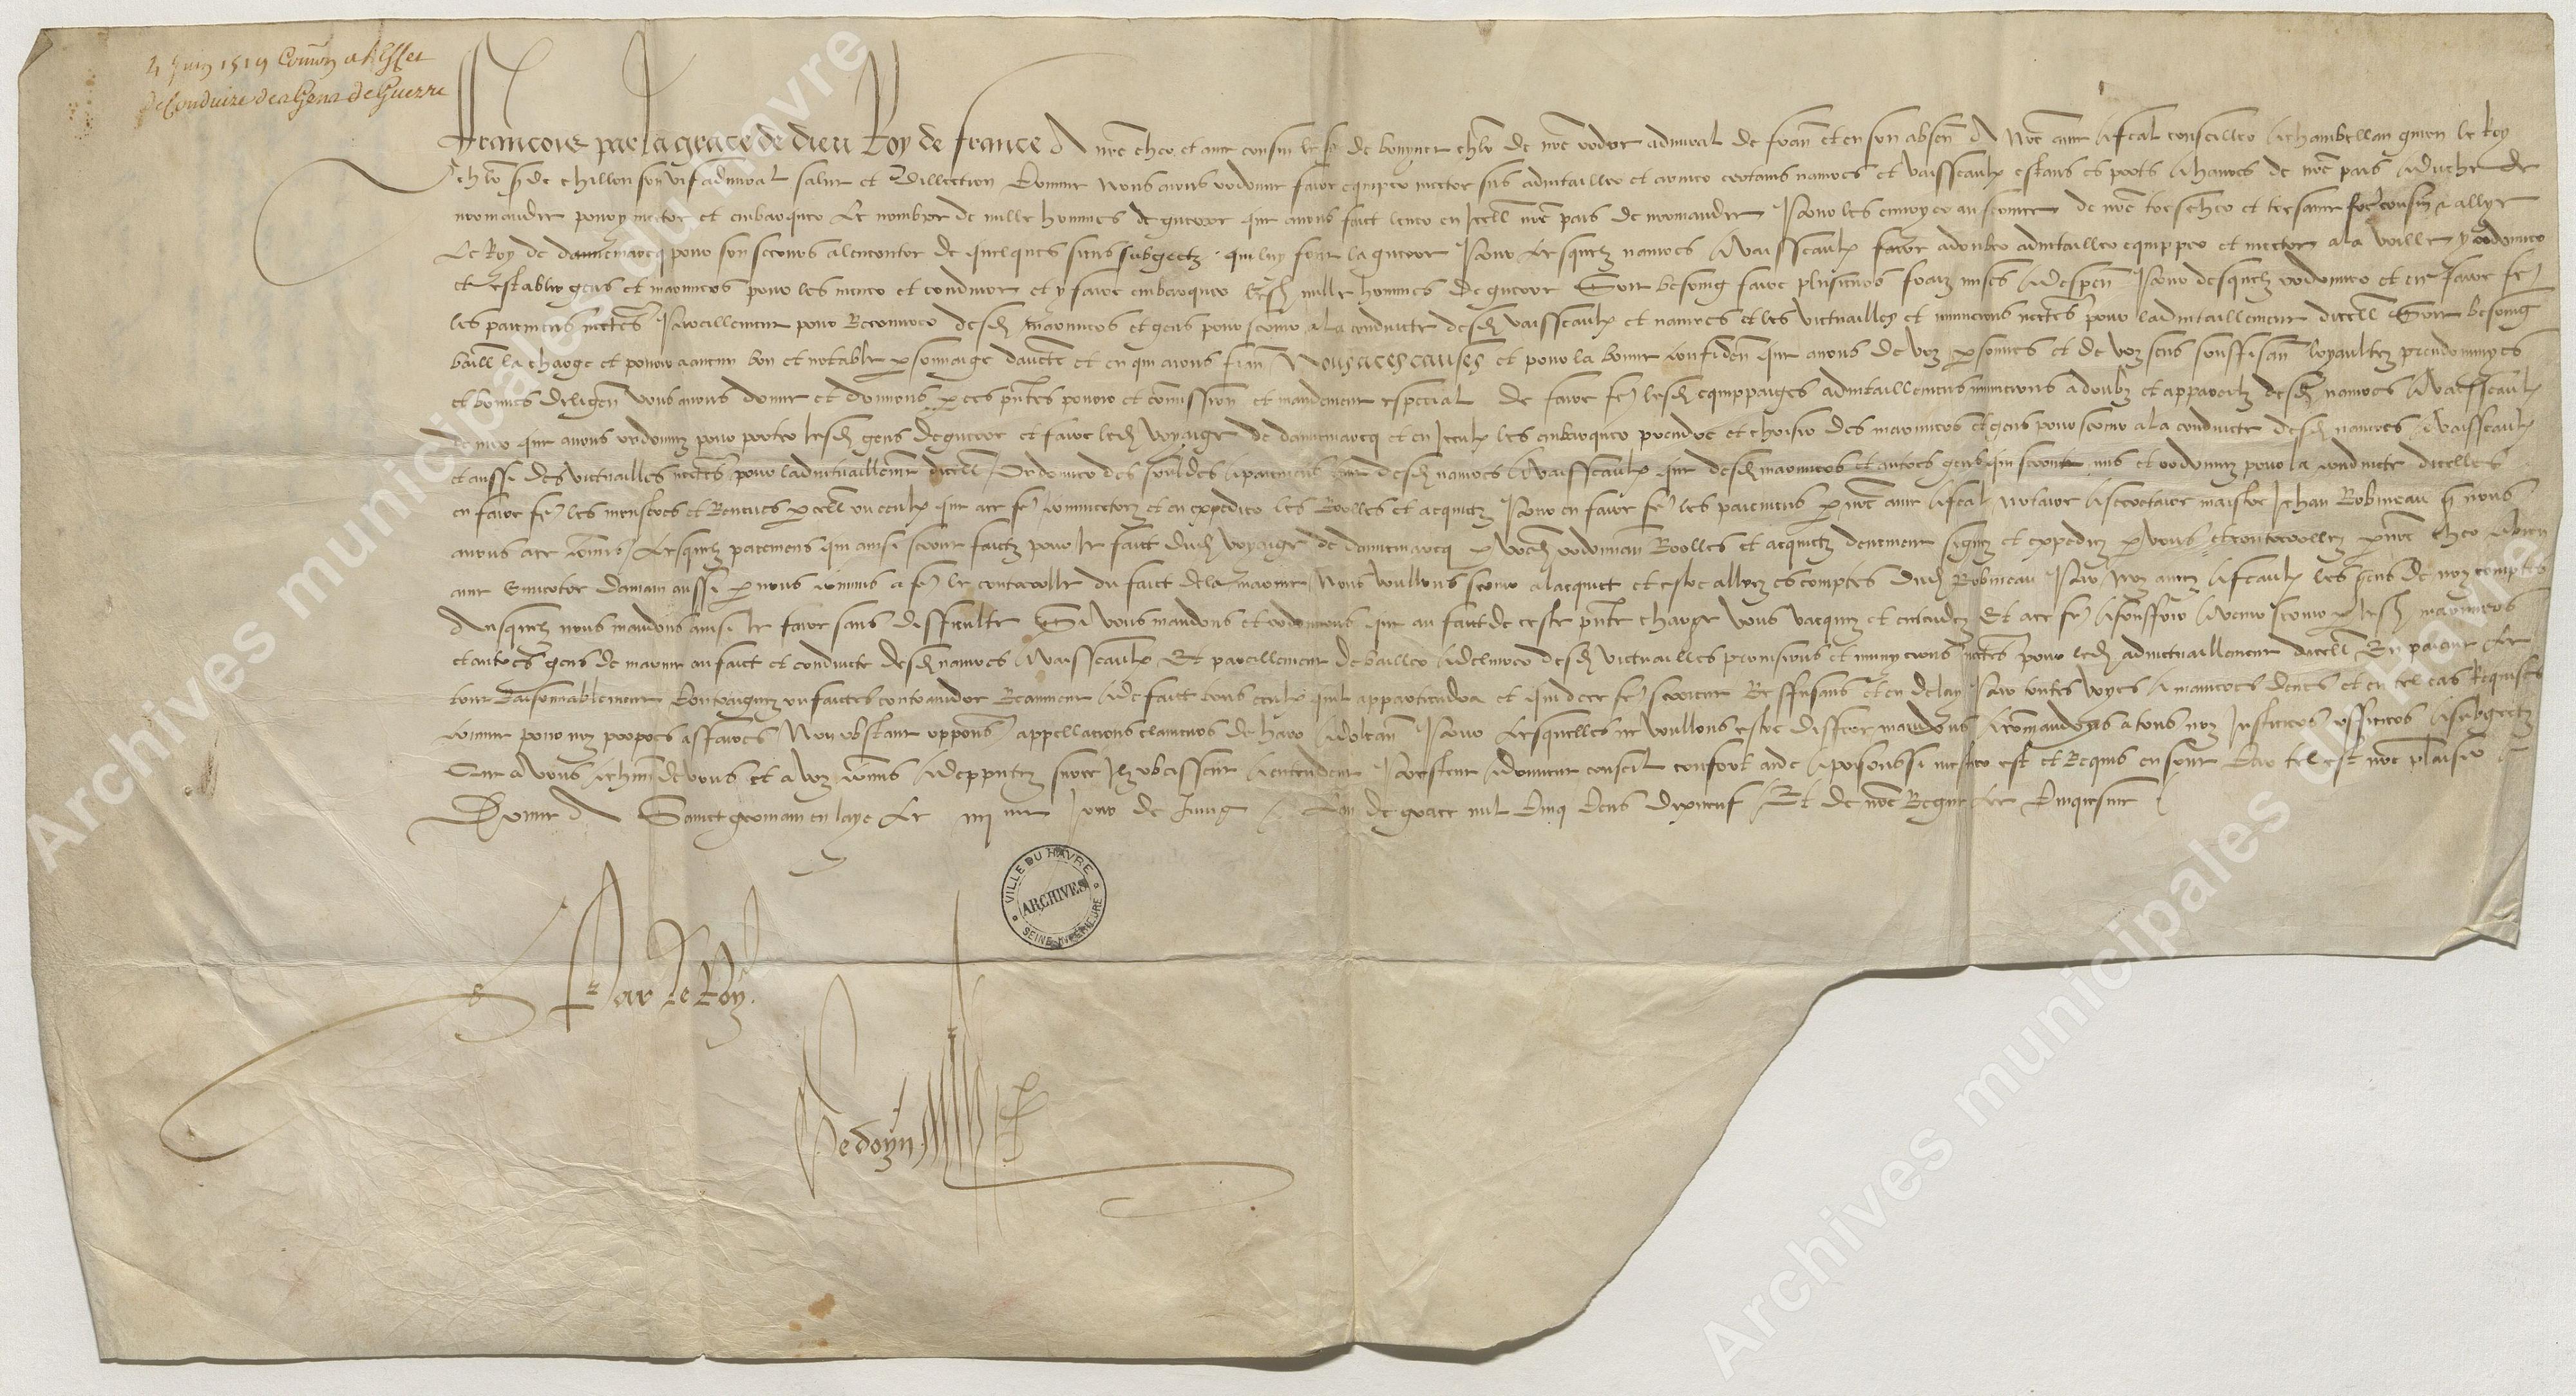 4 Juin 1519 Com̄on a l'Effet
de Conduire des Gens de Guerre
Francois par la grace de dieu Roy de france A nr̄e cher et amé cousin le sr de bonyvet chlr de nr̄e ordre admiral de fran̄ et en son absen̄ A Nr̄e amé & feal conseiller & chambellan guion le Roy
chlr sr de chillou son visadmiral salut et dillection Comme Nous ayons ordonné faire equiper mectre sus advitailler et armer certains navires et vaisseaulx estans es ports & havres de nr̄e pais & duché de
normandie pour y mectre et embarquer le nombre de mille hommes de guerre que avons fait lever en icell nr̄e pais de normandie pour les envoyer au secours de nr̄e tres cher et tres amé frere cousin & allyé
Le Roy de dannemarcq pour son secours alencontre de quelques siens subgectz qui luy font la guerre pour lesquelz navires & vaisseaulx faire adouber advitailler equipper et mectre a la voille y ordonner
et establir gens et mariniers pour les mener et conduire et y faire embarquer lesd mille hommes de guerre Soit besoing faire plusieurs fraiz mises & despen̄ pour desquelz ordonner et en faire fē
les paiemens necces̄ pareillement pour Recouvrer desd mariniers et gens pour servir a la conduicte desd vaisseaulx et navires et les victuailles et municions necces̄ pour ladvitaillement dicell Soit besoing
baill la charge et pouoir a aucun bon et notable personnaige dauctē et en qui ayons fian̄ Nous a ces causes et pour la bonne confiden̄ que avons de voz personnes et de voz sens souffisan̄ loyaultez preudommyes
et bonnes diligen̄ vous avons donné et donnons par ces pn̄tes pouoir et com̄ission et mandement especial de faire fē lesd equippaiges advitaillemens municions adoubz et appareilz desd navires & vaisseaulx
de mer que avons ordonnez pour porter lesd gens de guerre et faire led voyaige de dannemarcq et en iceulx les embarquer prendre et choisir des mariniers et gens pour servir a la conduicte desd navires & vaisseaulx
et aussi des victuailles necces̄ pour ladvitaillement dicell Ordonner des souldes & paiemens tant desd navires & vaisseaulx que desd mariniers et autres gens qui seront mis et ordonnez pour la conduicte dicelles
en faire fē les monstres et Reveues par cell ou ceulx que a ce fē commectrez et en expedier les Roolles et acquictz pour en faire fē les paiemens par nr̄e amé & feal notaire & secretaire maistre Jehan Robineau que nous
avons a ce commis Lesquelz paiemens qui ainsi seront faictz pour le faict dud voyaige de dannemarcq par vosd ordonnan̄ Roolles et acquictz deuement signez et expediez par vous et contrerollez par nr̄e cher & bien
amé aussi par nous commis a fē le contrerolle du faict de la marine Nous voullons servir a lacquict et estre allouez es comptes dud Robineau par Noz amez & feaulx les gens de noz comptes
Ausquelz nous mandons ainsi le faire sans difficulté Si vous mandons et ordonnons que au faict de ceste pn̄te charge vous vacquez et entendez Et a ce fē & souffrir & venir servir par lesd mariniers
et autres gens de marine au faict et conduicte desd navires & vaisseaulx Et pareillement de bailler & delivrer desd victuailles provisions et municions necces̄ pour led advictuaillement dicell En paiant le
tout Raisonnablement Contraignez ou faictes contraindre Reaument & de faict tous ceulx quil appartiendra et qui de ce fē seroient Reffusans et en delay par toutes voyes & manieres deues et en tel cas Requises
comme pour noz propres affaires Nonobstant oppons̄ appellacions clameurs de haro & dolean̄ pour lesquelles ne voullons estre differé mandons & commandons a tous noz Justiciers officiers & subgectz
Que a vous & chun̄ de vous et a voz commis & depputez en ce ilz obeissent & entendent prestent & donnent conseil confort aide & prisons si mestier est et Requis en sont Car tel est nr̄e plaisir
Donné A Sainct germain en laye Le iiij me Jour de Juing Lan de grace mil Cinq Cens dix neuf Et de nr̄e Regne Le Cinqiesme
Par le Roy
Hedoyn
VILLE DU HAVRE
ARCHIVES
SEINE INFÉRIEURE
Archives municipales du Havre
Archives municipales du Havre